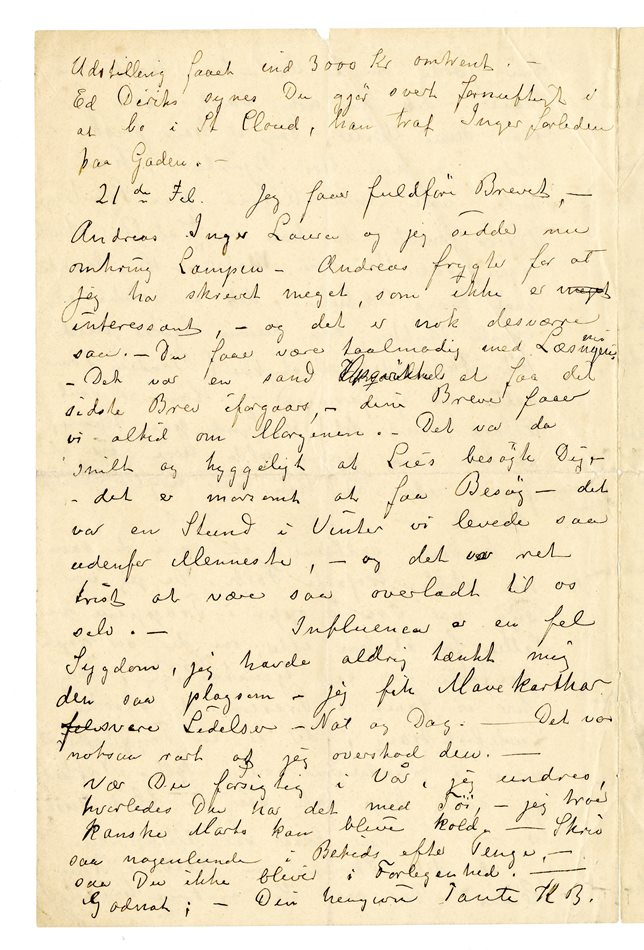 Udstilling faaet ind 3000 Kr omtrent. –
Ed Diriks synes Du gjør svert fornuftigt i
at bo i St Cloud, han traf Inger forleden
paa Gaden. –
21de Feb. Jeg faar fuldføre Brevet, –
Andreas Inger Laura og jeg sidde nu
omkring Lampen – Andreas frygte for at
jeg ha skrevet meget, som ikke er meget
interessant, – og det er nok desværre
saa. – Du faar være taalmodig med Læsningen
– Det var en sand at faa det
sidste Brev iforgaars, – dine Breve faaer
vi altid om Morgenen. – Det var da
snilt og hyggeligt at Lies besøgte Dig, –
– det er morsomt at faa Besøg – det
var en Stund i Vinter vi levede saa
udenfor Menneske, – og det var ret
trist at være saa overladt til os
selv. – Influenca er en fel
Sygdom, jeg havde aldrig tænkt mig
den saa plagsom – jeg fik Mavekarthar
svere Lidelser – Nat og Dag. – Det var
noksaa rart at jeg overstod den. –
Vær Du forsigtig i Vår, jeg undres,
hvorledes Du har det med Tøi, – jeg troer
kanske Marts kan blive kold. – Skriv
saa nogenlunde i Beteds efter Penge, –
saa Du ikke bliver i Forlegenhed. –
Godnat; – Din hengivne Tante K B.